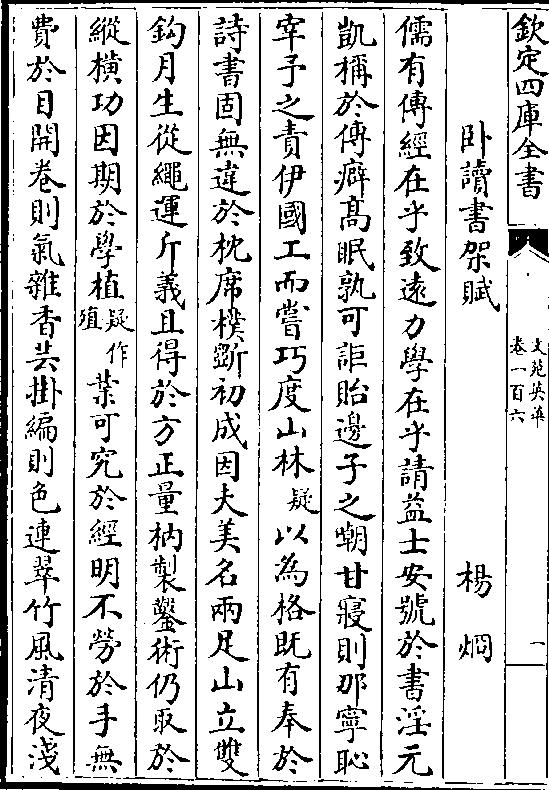 欽定四庫全書
文苑英華
卷一百六
一
卧讀書架賦 楊烱
儒有傳經在乎致遠力學在乎請益士安號於書淫元
凱稱於傳癖高眠孰可詎貽邊子之嘲甘寢則那寧恥
宰予之責伊國工而嘗巧度山林疑以為格既有奉於
詩書固無違於枕席樸斲初成因夫美名兩足山立雙
鈎月生從繩運斤義且得於方正量枘製鑿術仍取於
縱橫功因期於學植疑作殖業可究於經明不勞於手無
費於目開卷則氣雜香芸掛編則色連翠竹風清夜淺